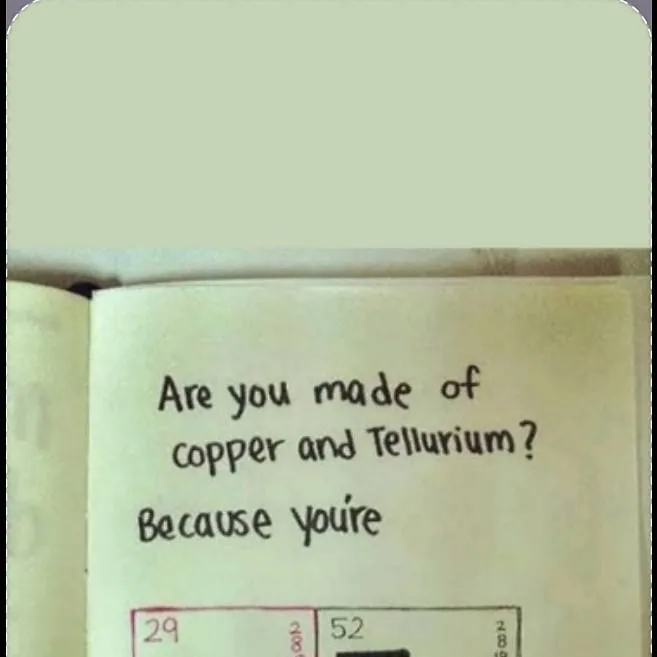 Are you made of
copper and Tellurium?
Because you're
29 52
2 2
8 8